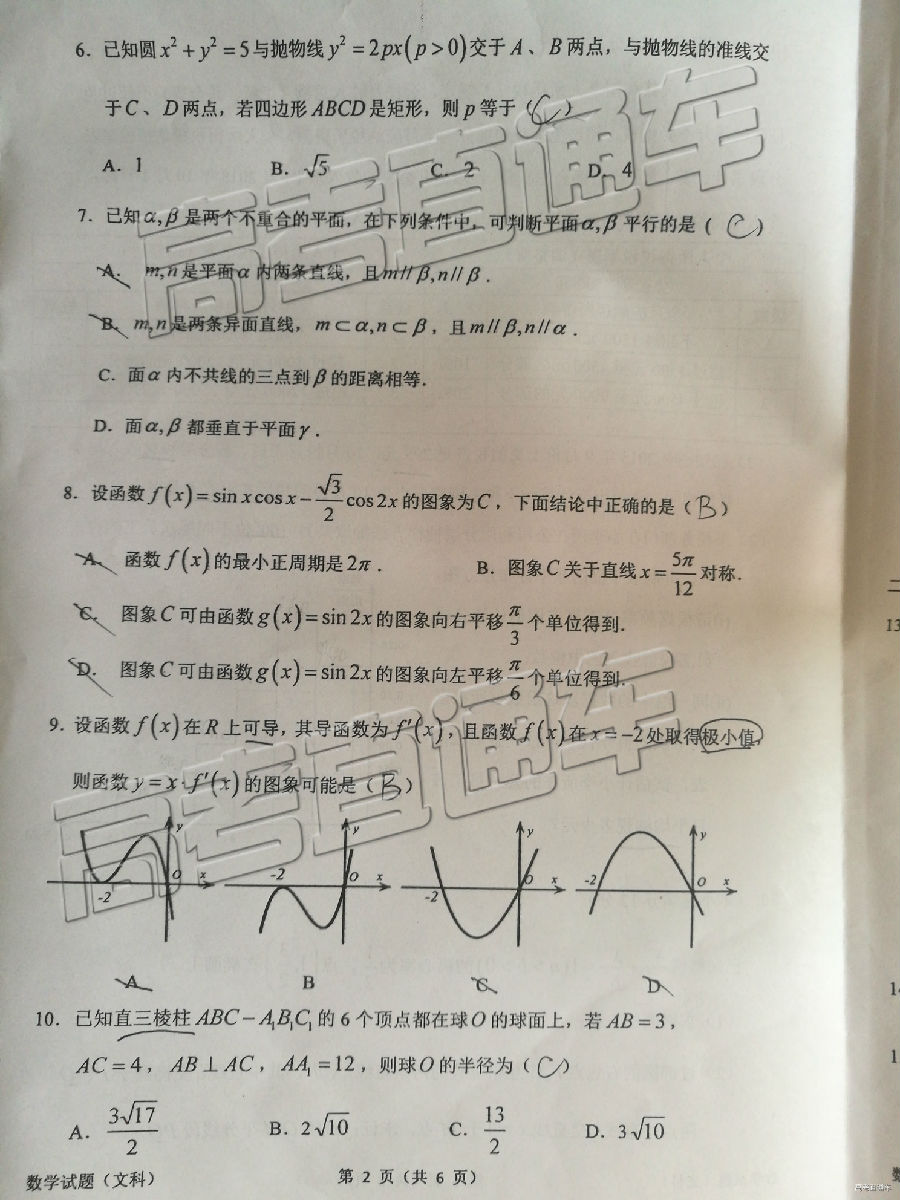 6. 已知圆 x² + y² = 5 与抛物线 y² = 2px(p > 0) 交于 A、B 两点，与抛物线的准线交
于 C、D 两点，若四边形 ABCD 是矩形，则 p 等于（C）
A. 1 B. √5 C. 2 D. 4
7. 已知 α,β 是两个不重合的平面，在下列条件中，可判断平面 α,β 平行的是（C）
A. m,n 是平面 α 内两条直线，且 m// β,n// β.
B. m,n 是两条异面直线，m⊂α,n⊂β，且 m// β,n// α.
C. 面 α 内不共线的三点到 β 的距离相等.
D. 面 α,β 都垂直于平面 γ.
8. 设函数 f(x) = sin x cos x − √3/2 cos 2x 的图象为 C，下面结论中正确的是（B）
A. 函数 f(x) 的最小正周期是 2π. B. 图象 C 关于直线 x = 5π/12 对称.
C. 图象 C 可由函数 g(x) = sin 2x 的图象向右平移 π/3 个单位得到.
D. 图象 C 可由函数 g(x) = sin 2x 的图象向左平移 π/6 个单位得到.
9. 设函数 f(x) 在 R 上可导，其导函数为 f′(x)，且函数 f(x) 在 x = −2 处取得极小值，
则函数 y = x·f′(x) 的图象可能是（B）
y y y y
-2 O x -2 O x -2 O x -2 O x
A B C D
10. 已知直三棱柱 ABC − A₁B₁C₁ 的 6 个顶点都在球 O 的球面上，若 AB = 3，
AC = 4，AB ⊥ AC，AA₁ = 12，则球 O 的半径为（C）
A. 3√17/2 B. 2√10 C. 13/2 D. 3√10
数学试题（文科） 第 2 页（共 6 页）
高考直通车
高考直通车
二
13
14
1
数